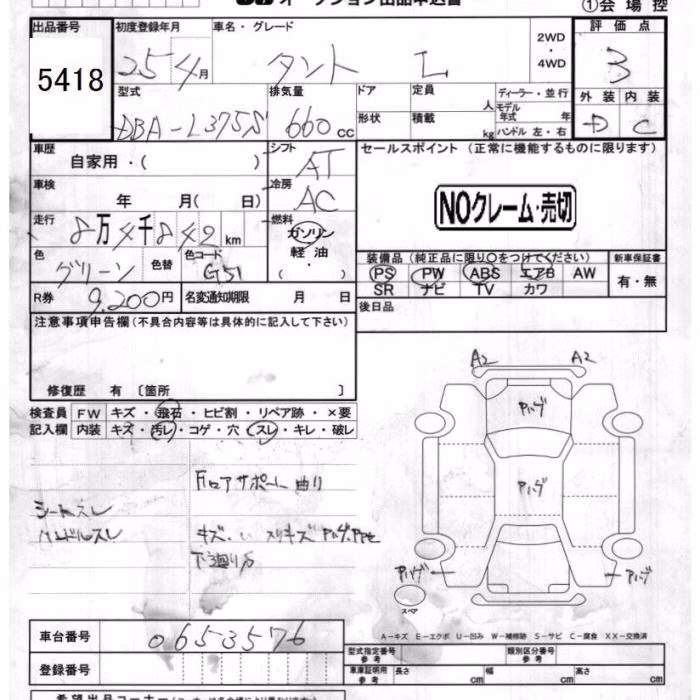 オークション出品申込書 ①会場控
出品番号 初度登録年月 車名・グレード 評価点
5418 25年4月 タント L 2WD・4WD 3
型式 排気量 ドア 定員 人 ディーラー・並行 外装 内装
DBA-L375S 660cc 形状 積載 kg モデル年式 年式 ハンドル 左・右 D C
車歴 自家用・( ) シフト AT セールスポイント (正常に機能するものに限ります)
車検 年 月( 日) 冷房 AC NOクレーム・売切
走行 8万4千842km 燃料 ガソリン 軽油・( )
色 グリーン 色替 色コード G51 装備品 (純正品に限り○をつけてください) 新車保証書
PS PW ABS エアB AW 有・無
SR ナビ TV カワ
R券 9,200円 名変通知期限 月 日 後日品
注意事項申告欄(不具合内容等は具体的に記入して下さい)
修復歴 有 〔箇所 〕
検査員 FW キズ・飛石・ヒビ割・リペア跡・×要
記入欄 内装 キズ・汚レ・コゲ・穴・スレ・キレ・破レ
A2 A2
Pハゲ
Pハゲ
フロアサポート曲り
シートスレ
ハンドルスレ
下廻りS
Pハゲ Pハゲ
スペア
A-キズ E-エクボ U-凹み W-補修跡 S-サビ C-腐食 XX-交換済
車台番号 0653576
型式指定番号 参考 類別区分番号 参考
登録番号 車庫証明用 参考 長さ cm 幅 cm 高さ cm